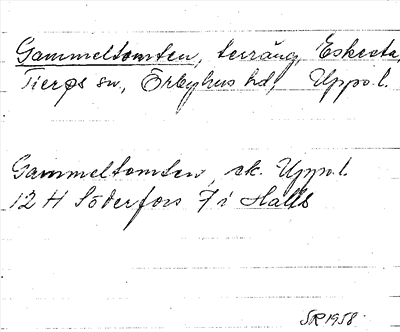 Gammeltomten, terräng, Eskesta,
Tierps sn., Örbyhus hd, Uppo.l.
Gammeltomten, ek. Upps.l.
12 H Söderfors 7 i Halls
SR 1958